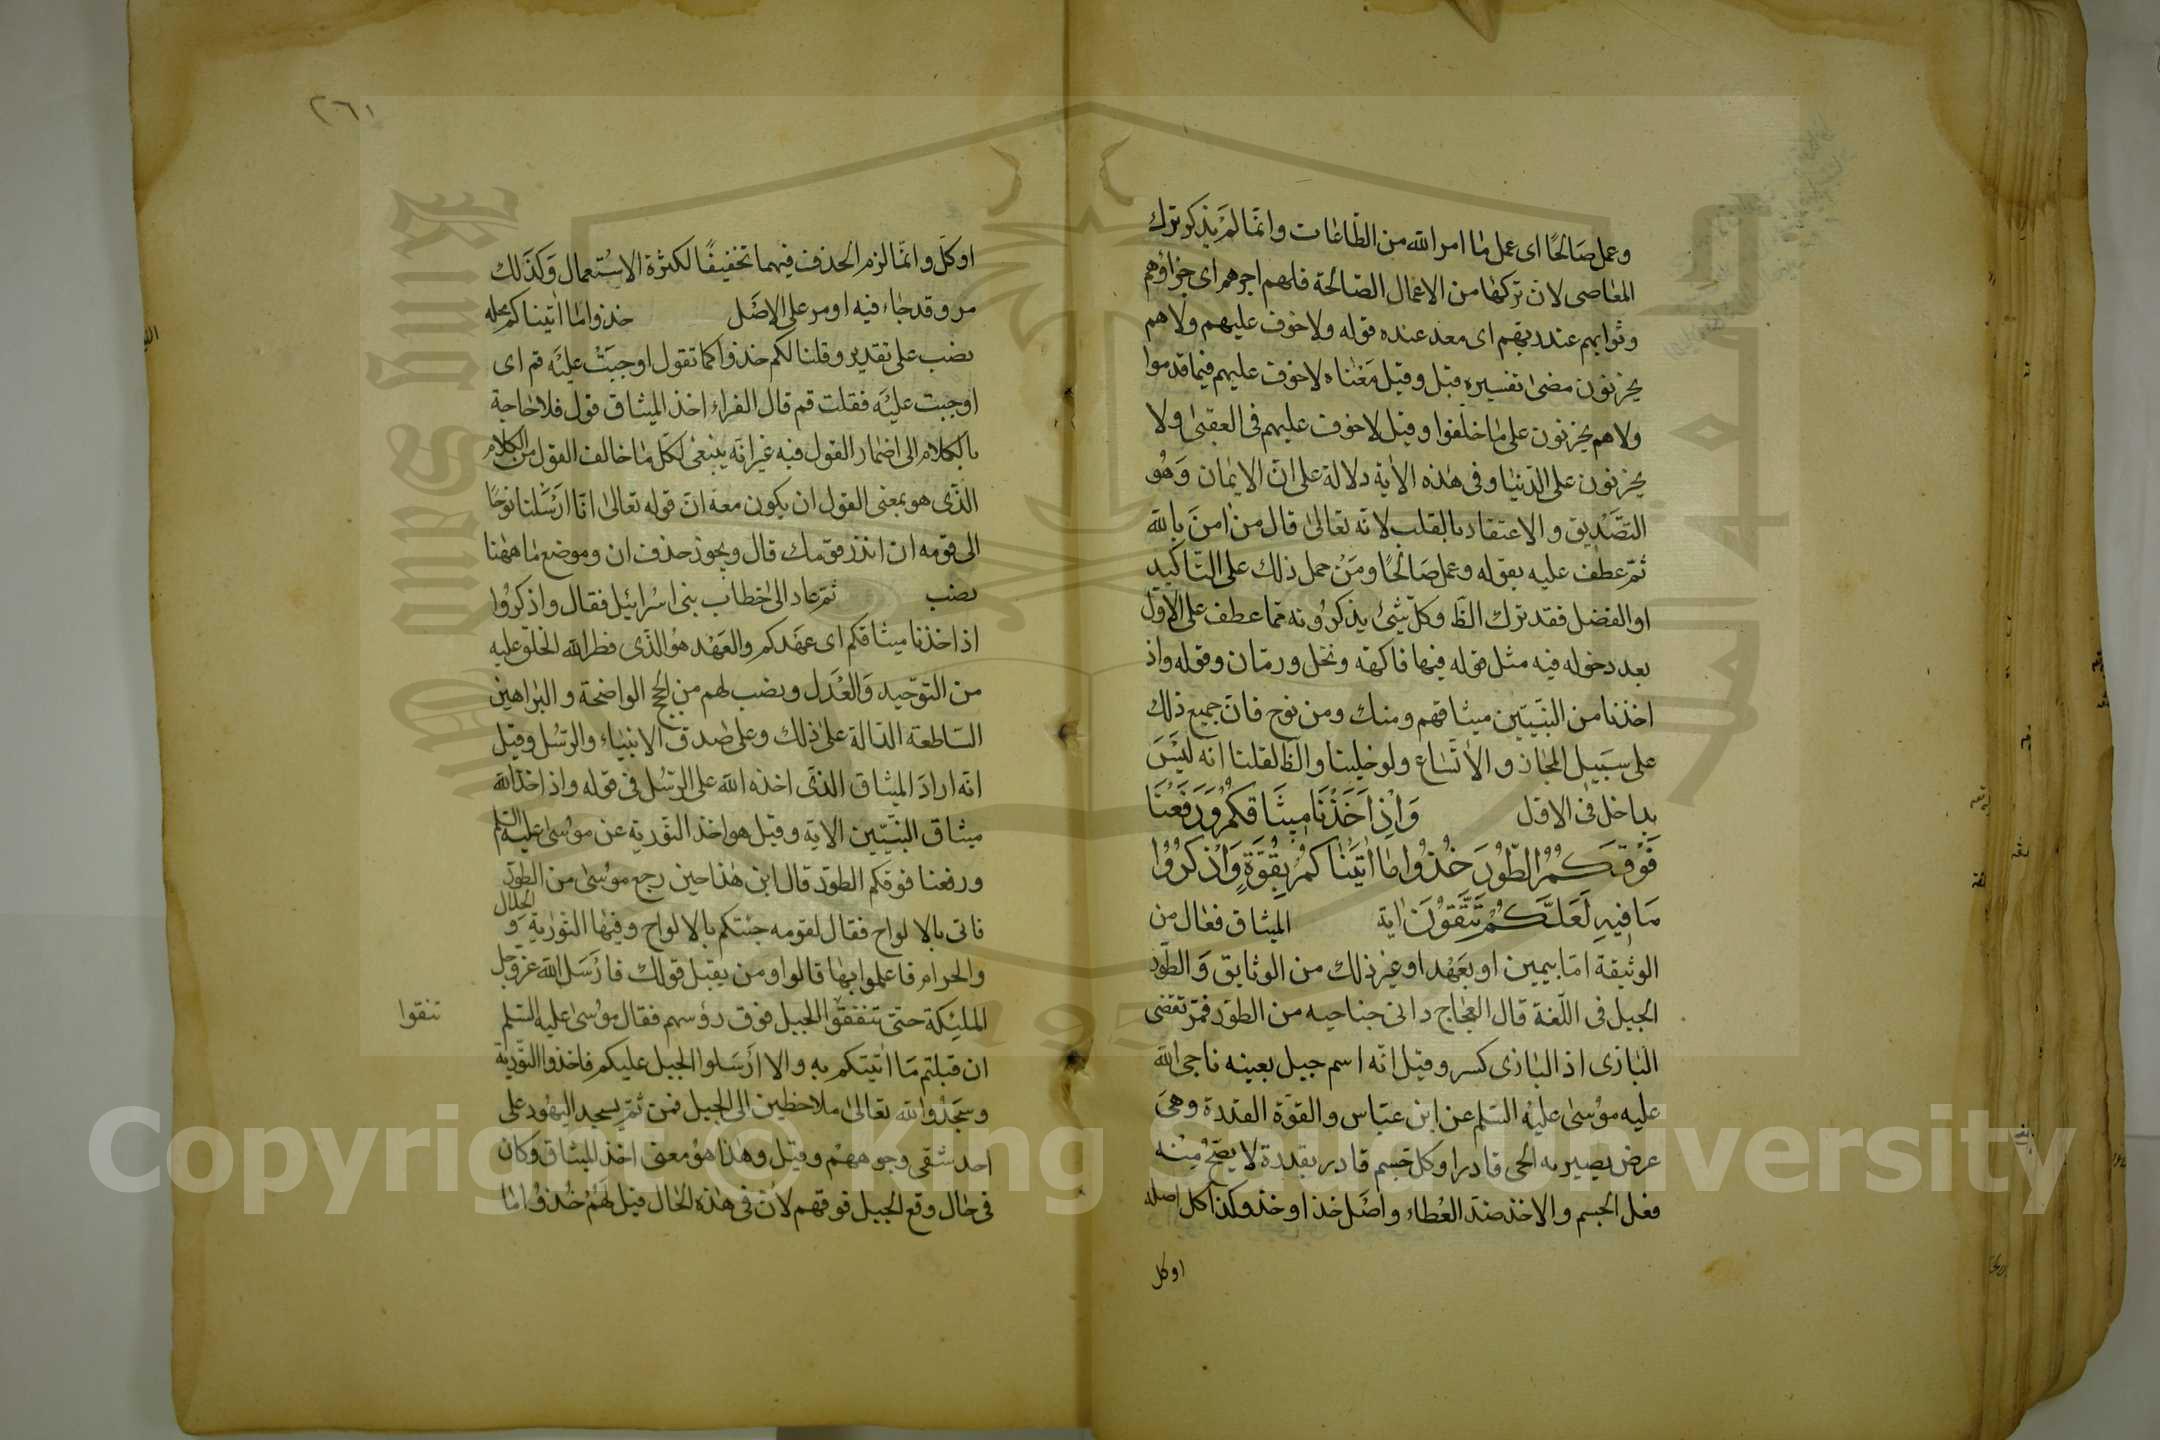 وعمل صالحًا اى عمل ما امر الله من الطّاعات وانّما لمْ يذكر ترك
المعاصى لانّ تركها من الاعمال الصّالحة فلهم اجرهم اى جزاؤهم
وثوابهم عند ربّهم اى معد عنده قوله ولا خوف عليهم ولا هم
يحزنون مضى تفسيره قبل وقيل مَعْناه لا خوف عليهم فيما قدموا
ولا هم يحزنون على ما خلفوا وقيل لا خوف عليهم فى العقبى ولا
يحزنون على الدّنيا وفى هذه الاية دلالة على انّ الايمان وَهُو
التصَّدْيق والاعتقاد بالقلب لانّه تعالىٰ قال من اٰمنَ بالله
ثمّ عطف عليه بقوله وعمل صَالحًا ومَنْ حمل ذلك على التّاكيد
او الفضل فقد ترك الظّ وكلّ شئ يذكرُونه ممّا عطف على الاوّل
بعد دخوله فيه مثل قوله فيها فاكهة ونخل ورمّان وقوله واذ
اخذنا من النبّيين ميثاقهم ومنك ومن نوح فانّ جميع ذلك
على سَبيل المجاز والاتّساع ولو خلينا والظّ لقلنا انه ليْسَ
بداخل فى الاوّل وَاِذْ اَخَذْنَا مِيثَاقَكُمْ وَرَفَعْنَا
فَوْقَكُمُ الطُّورَ خُذُوا مٰا اٰتَيْنٰاكُمْ بِقُوَّةٍ وَاذْكُرُوا
مَا فِيهِ لَعَلَّكُمْ تَتَّقُونَ اية الميثاق فعال من
الوثيقة امّا بيمين او بعَهْد او غير ذلك من الوثايق وَالطّور
الجبل فى اللّغة قال العجّاج دانى جناحيه من الطور فمرّ تقضى
البازى اذ البازى كسر وقيل انّه اسم جبل بعينه ناجى الله
عليه موُسىٰ عليهْ السّلم عن ابن عبّاس والقوّة القدرة وهىَ
عرض يصير به الحى قادرا وكل جسم قادر بقدرة لا يصحّ مِنْه
فعل الجسم والاخذ ضدّ العُطاء واصْل خذ اوخذ وكذا كل اصله
اوكل
٢٦١
اوكل وانّما لزم الحذف فيهما تخفيفًا لكثرة الاسْتعمال وَكذَلك
مر وقد جٰاء فيه اومر على الاصْل خذوا مٰا اٰتيناكم محله
نصب على تقدير وقلنا لكم خذوا كما تقول اوجبَتْ عليْه قم اى
اوجبت عليْه فقلت قم قال الفراء اخذ الميثاق قول فلا حاجة
بالكلام الى اضمار القول فيه غير انّه ينبغى لكلّ ما خالف القول من الكلام
الذّى هو بمعنى القول ان يكون معه انّ قوله تعالىٰ انّا ارْسَلنا نوحًا
الى قومه ان انذر قومك قال ويجوز حذف ان وموضع ما ههنا
نصب ثمّ عاد الى خطاب بنى اسْرائيل فقال واذكرُوا
اذ اخذنا ميثاقكم اى عهَدكم والعَهْد هوُ الذّى فطر الله الخلق عليه
من التوّحيد وَالعْدَل ونصب لهم من الحجج الواضحة والبراهين
السّاطعة الدّالة على ذلك وعلى صدق الانبياء والرسُل وقيل
انّه ارادَ الميثاق الذّى اخذه الله على الرسُل فى قوله واذ اخذ الله
ميثاق النبّيّين الاية وقيل هو اخذ التورية عن موسى عليه السّلم
ورفعنا فوقكم الطوّر قال ابن هذا حين رجع موسى من الطوّر
فاتى بالالواح فقال لقومه جئتكم بالالواح وفيها التّورٰية و الحلال
والحرام فاعملوا بها قالوا ومن يقبل قولك فارْسَل الله عزّ وجل
الملئكة حتىّ تنفقوّا الجبل فوق رؤسهم فقال موسى عليه السّلم
تنقوا
ان قبلتم مَا اٰتيتكم به والا ارْسَلوا الجبل عليكم فاخذوا التّورٰية
وسَجدُوا لله تعالىٰ ملاحظين الى الجبل فمن ثمّ يسجد اليهود على
احد شقى وجوههْم وقيل وهذا هوُ معنى اخذ الميثاق وكان
فى حال وقع الجبل فوقهم لانّ فى هذه الحٰال قيل لهَمْ خُذوُا مٰا
Copyright © King Saud University